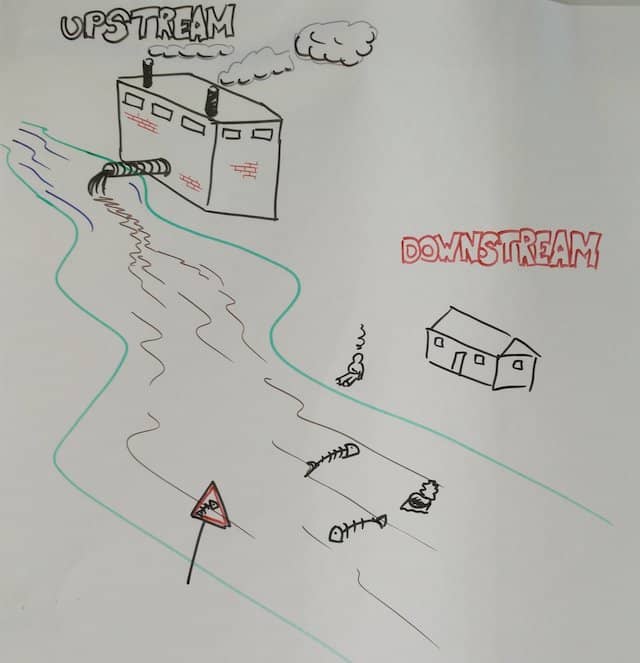 UPSTREAM
DOWNSTREAM